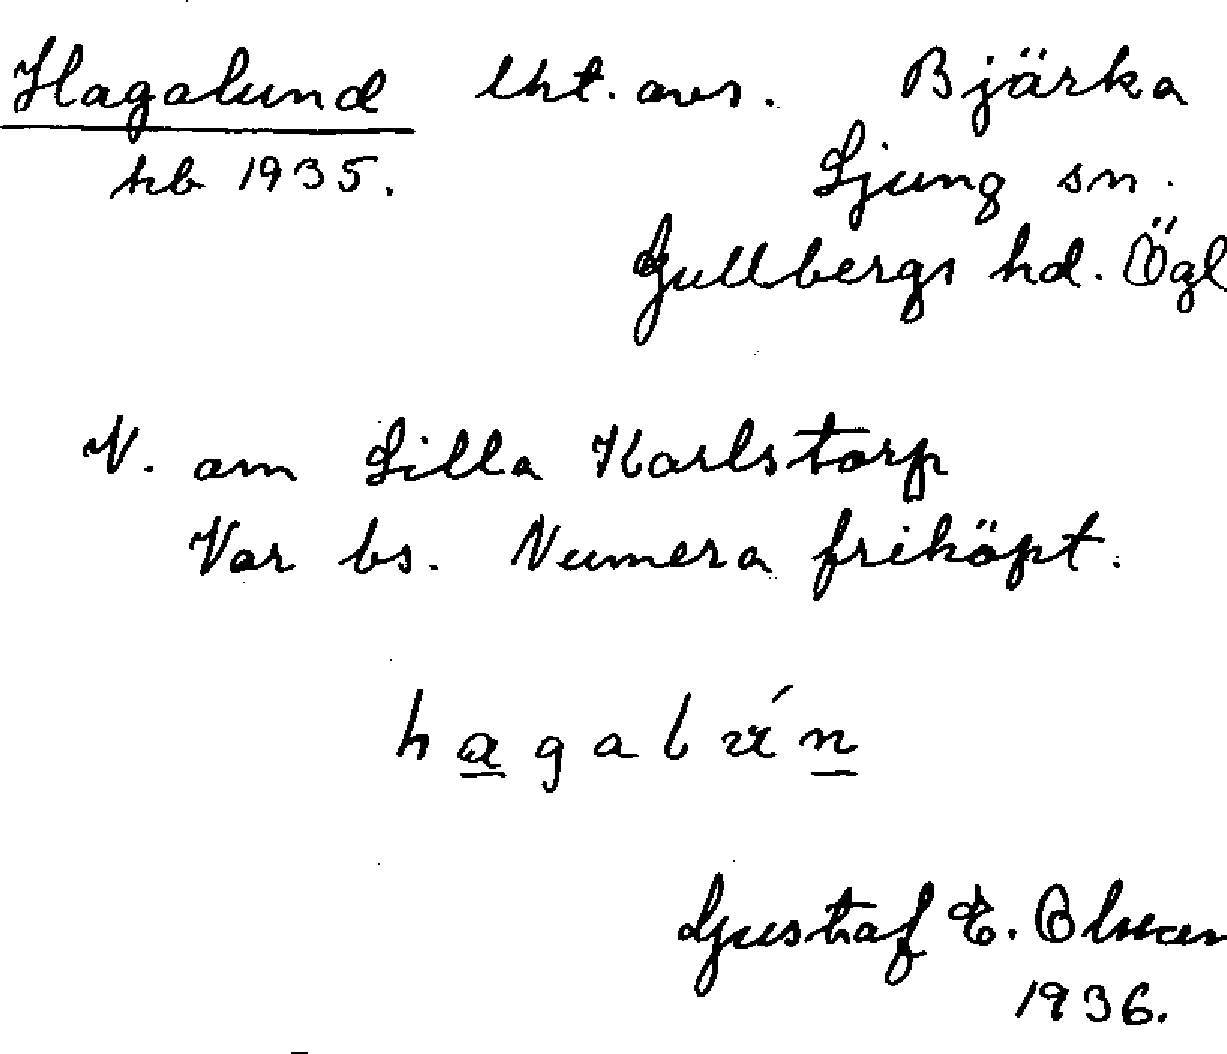 Hagalund lht. avs. Bjärka
hb 1935. Ljung sn.
Gullbergs hd. Ögl
V. om Lilla Karlstorp
Var bs. Numera friköpt.
Gustaf E. Olsson
1936.